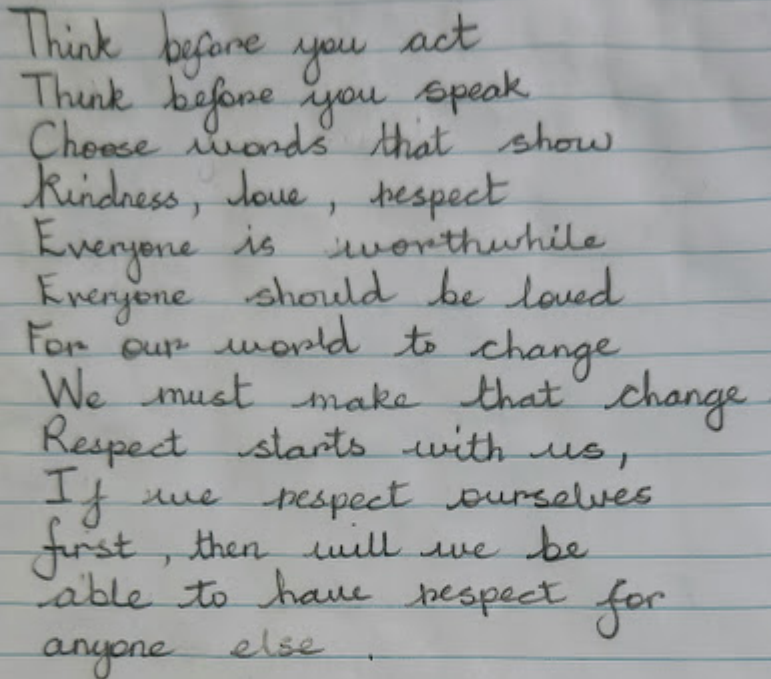 Think before you act
Think before you speak
Choose words that show
Kindness, love, respect
Everyone is worthwhile
Everyone should be loved
For our world to change
We must make that change
Respect starts with us,
If we respect ourselves
first, then will we be
able to have respect for
anyone else.